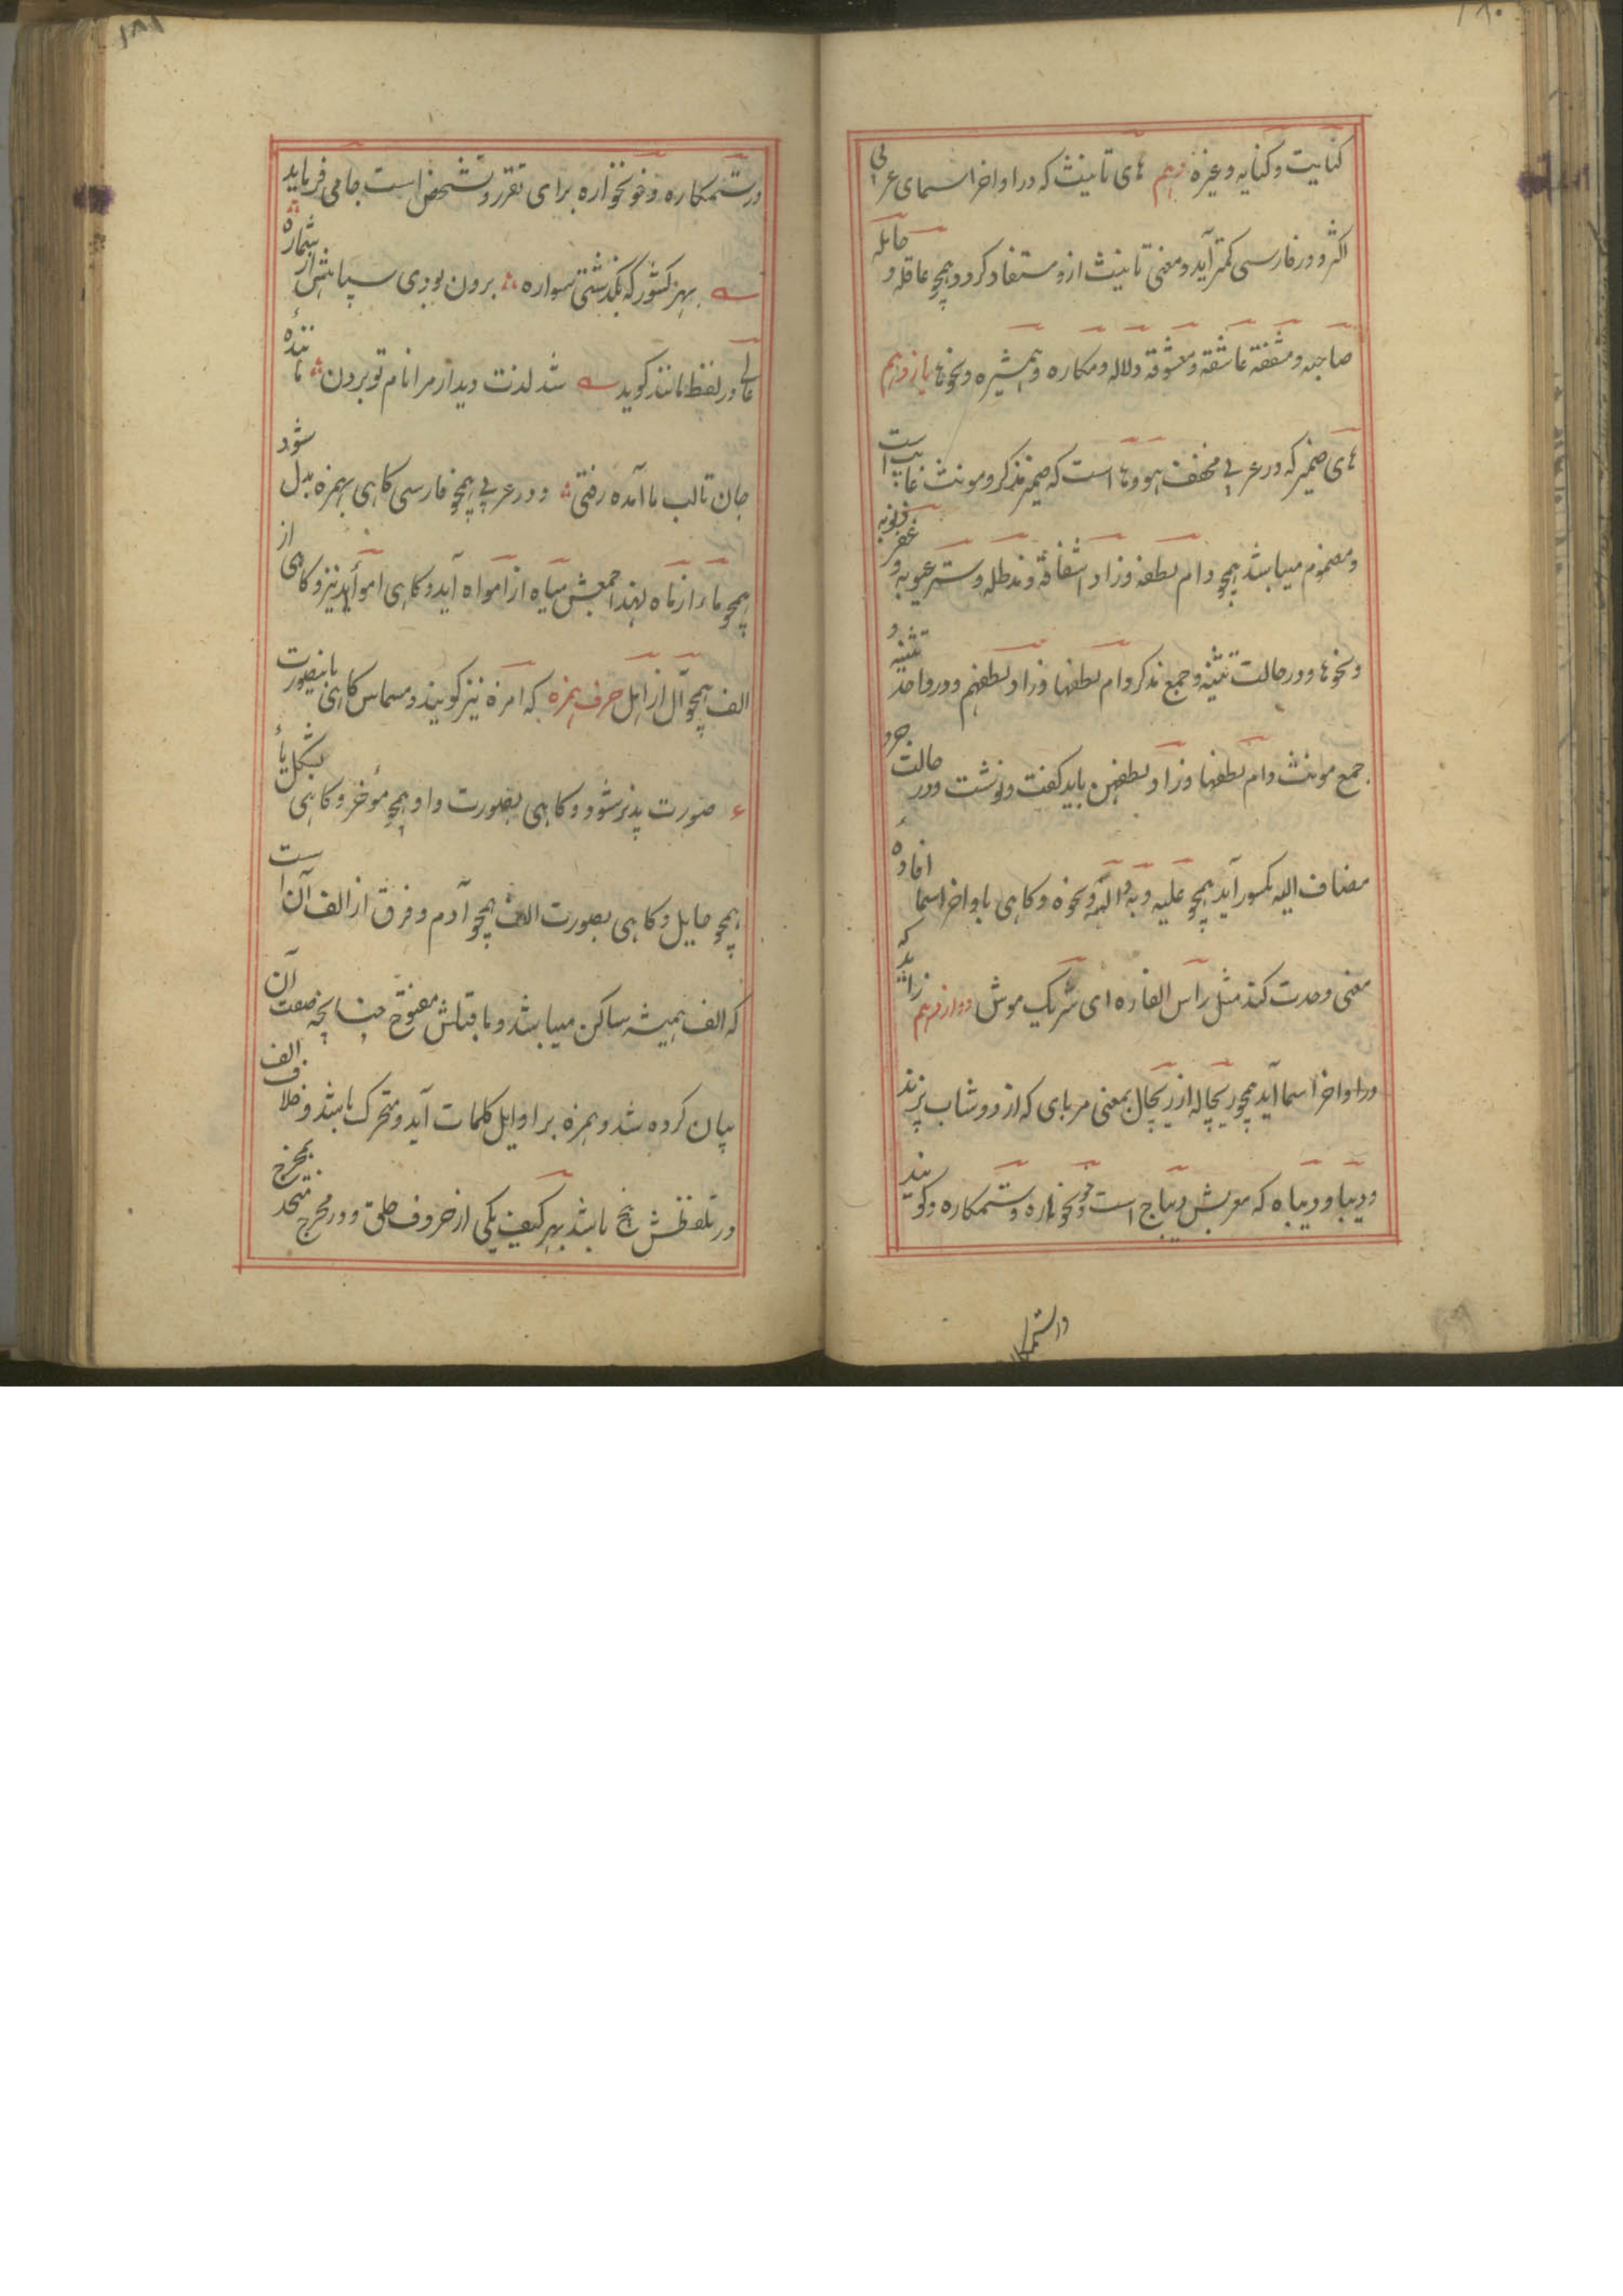 ۱۸۰
کنایت و کنایه و غیره دهم های تانیث که در اواخر اسمای عربی
اکثر و در فارسی کمتر آید و معنی تانیث ازو مستفاد کردد همچو عاقله و حامله
صاحبه و مشفقه عاشقه و معشوقه دلاله و مکاره و همشیره و نحوها یازدهم
های ضمیر که در عربی مخفف هو و ها است که ضمیر مذکر و مونث غایب است
و مضموم میباشد همچو دام لطفه و زاد اشفاقه و مد ظله و ستر عیوبه و غفر ذنوبه
و نحوها و در حالت تثنیه و جمع مذکر دام لطفهما و زاد لطفهم و در واحد و تثنیه
جمع مونث دام لطفها و زاد لطفهن باید گفت و نوشت و در حالت جر و
مضاف الیه مکسور آید همچو علیه و به و الله و نحوه و کاهی باواخر اسما افادهٔ
معنی وحدت کند مثل راس الفاره ای سر یک موش دوازدهم زاید که
در اواخر اسما آید همچو ریچاله از ریچال بمعنی مربای که از دوشاب پزند
و دیبا و دیباه که معربش دیباج است و خونخواره و ستمکاره و گویند
در ستمکاره
۱۸۱
در ستمکاره و خونخواره برای تقرر و تشخص است جامی فرماید
بهر کشور که بگذشتی سواره برون بودی سپاهش از شماره
عالی در لفظ مانند گوید شد لذت دیدار مرا نام تو بردن مانندهٔ
جان تا لب ما آمده رفتی و در عربی همچو فارسی کاهی بهمزه بدل شود
همچو ماء از ماه لهذا جمعش میاه از امواه آید و کاهی امواء آید نیز و کاهی از
الف همچو آل از اهل حرف همزه که امزه نیز گویند و مسماس کاهی باینصورت
ء صورت پذیر شود و کاهی بصورت واو همچو مؤخر و کاهی بشکل یاء
همچو حایل و کاهی بصورت الف همچو آدم و فرق از الف آن است
که الف همیشه ساکن میباشد و ماقبلش مفتوح چنانچه صفت آن
بیان کرده شد و همزه بر اوایل کلمات آید و متحرک باشد و خلاف الف
در تلفظش باشد بهر کیف یکی از حروف حلق و در مخرج متحد بمخرج